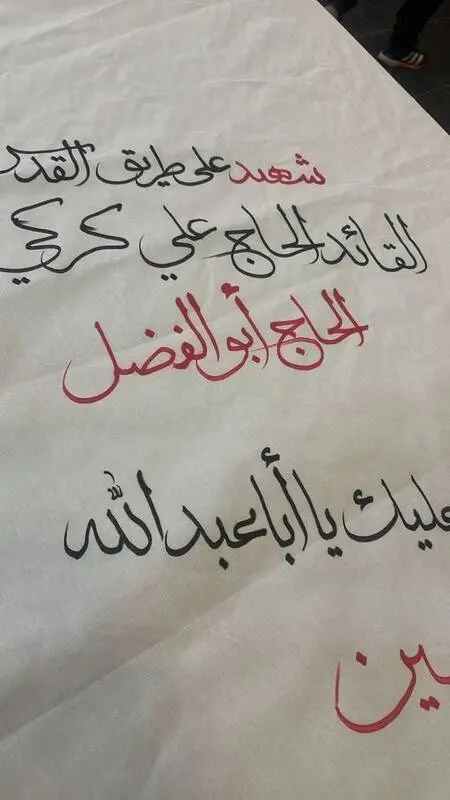 شهيد على طريق القدس
القائد الحاج علي كركي
الحاج أبو الفضل
عليك يا أبا عبد الله
ين